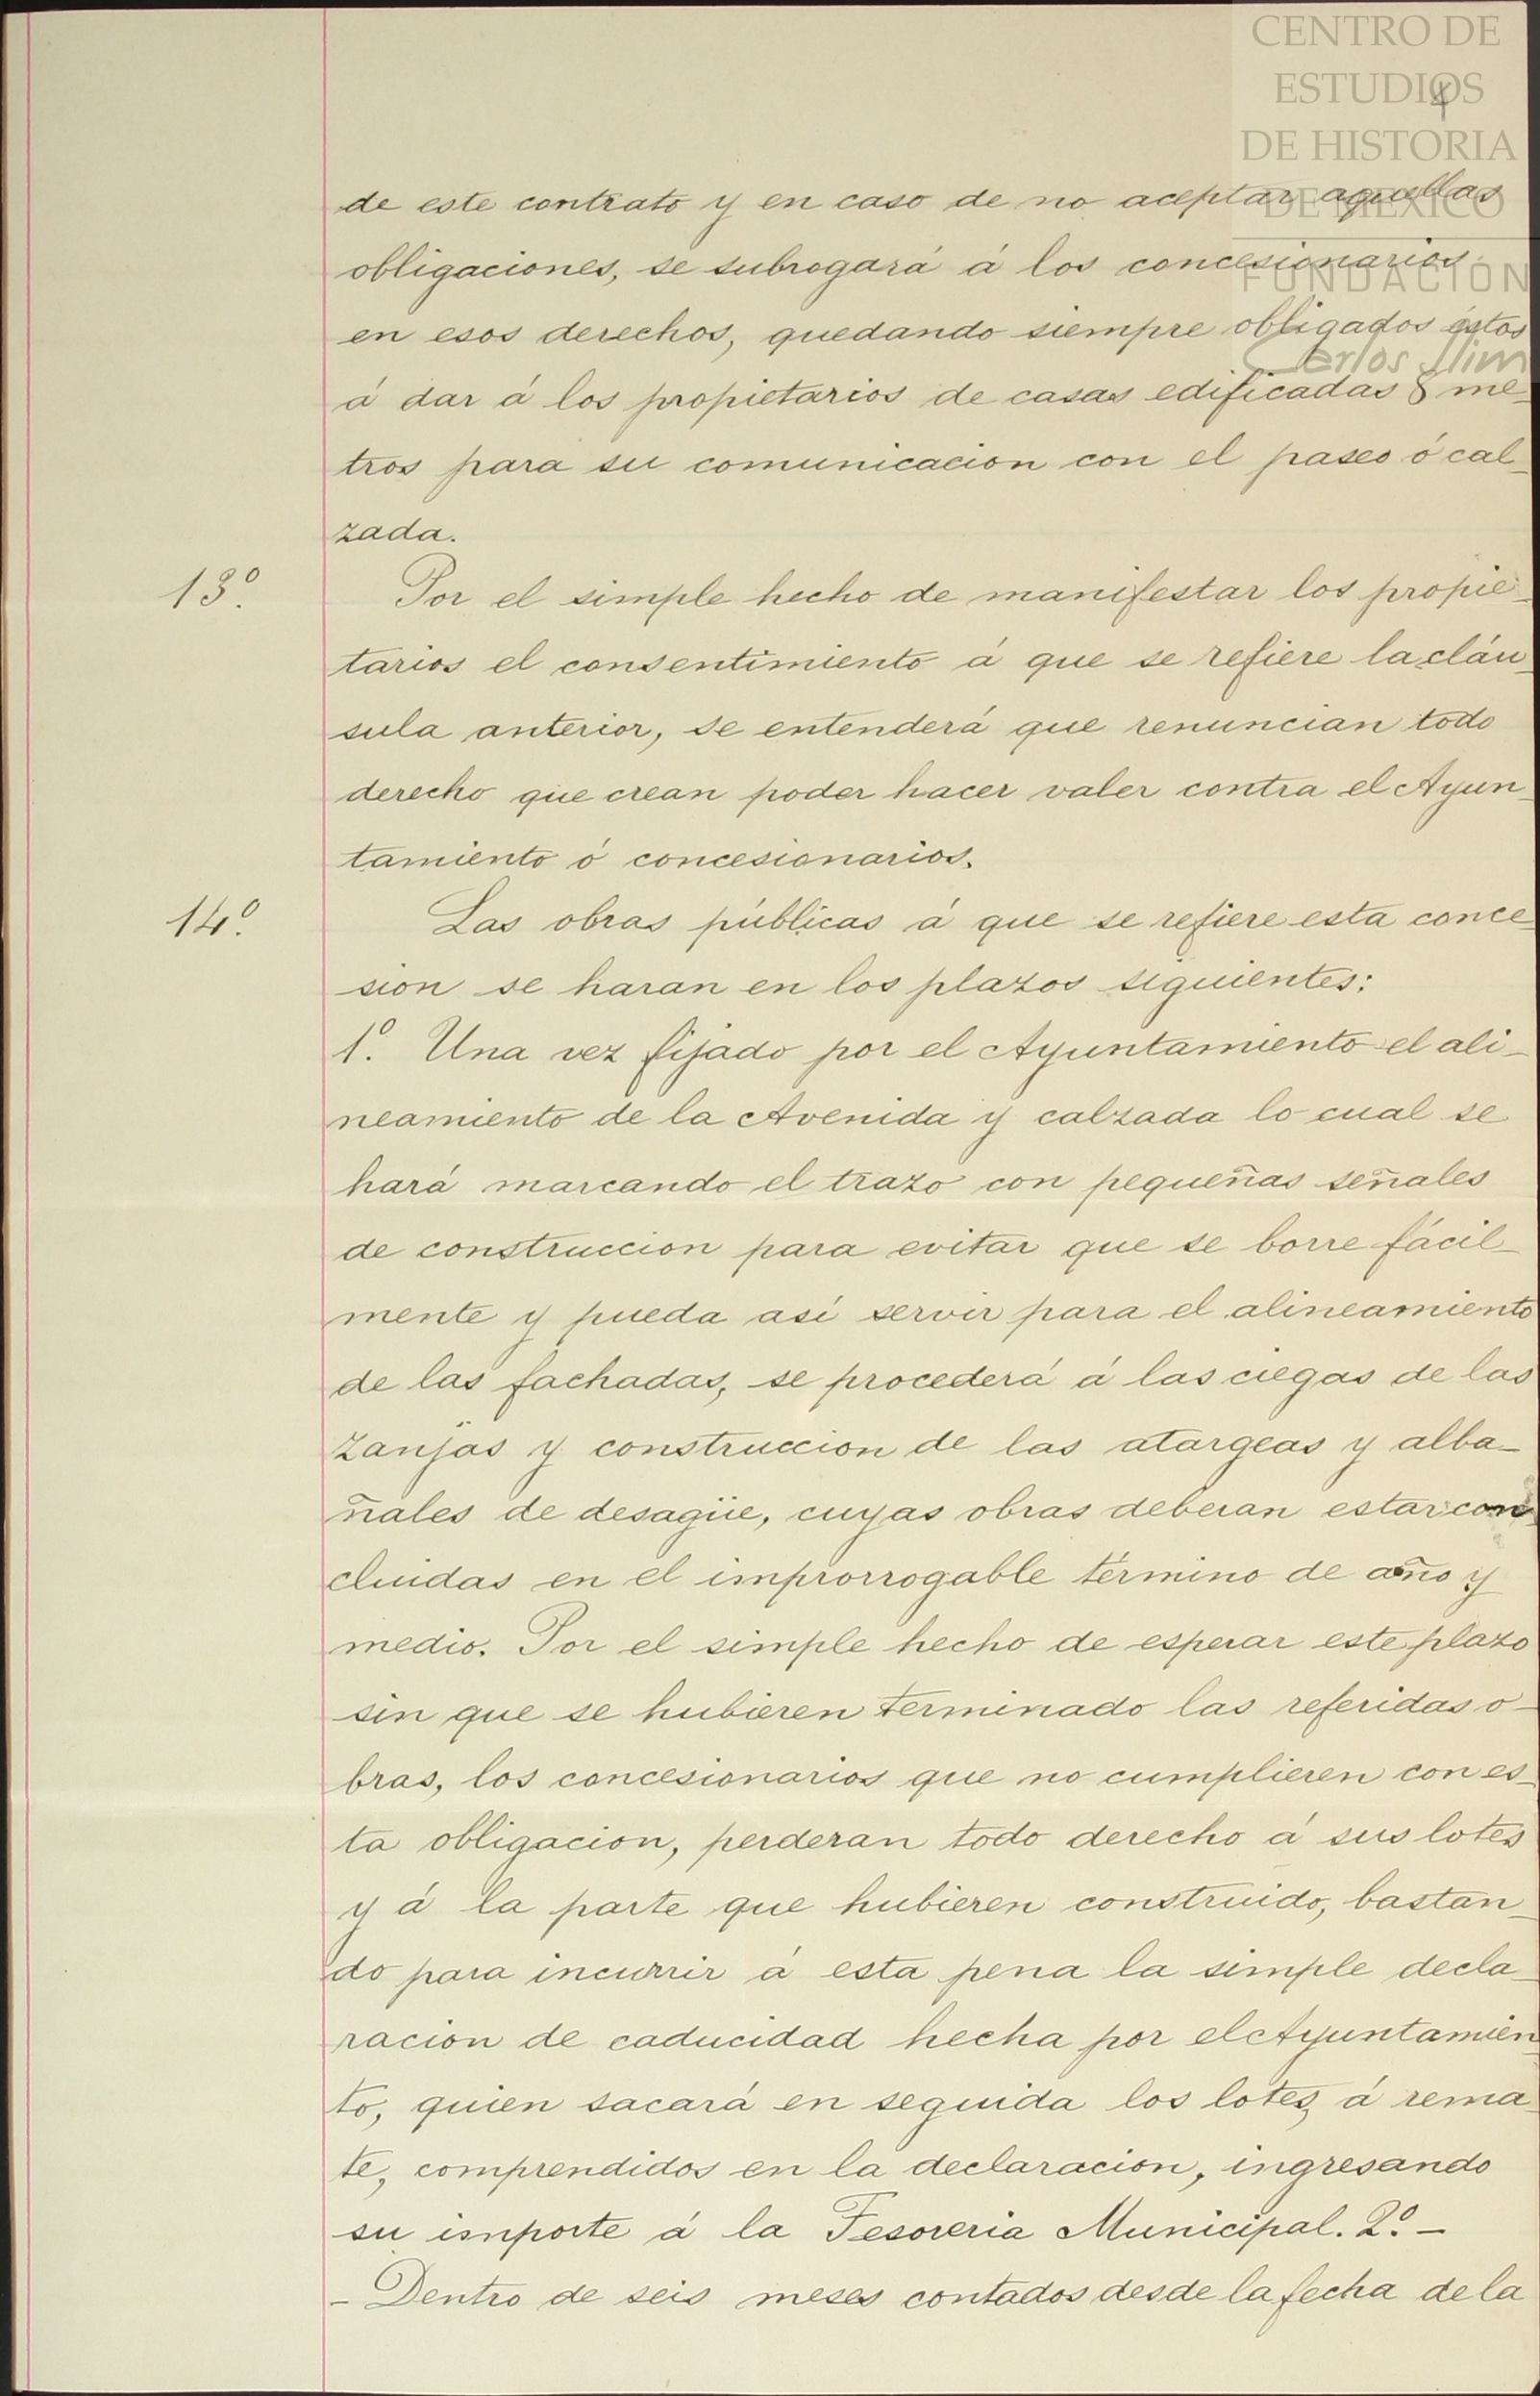 CENTRO DE
ESTUDIOS
DE HISTORIA
DE MÉXICO
FUNDACIÓN
Carlos Slim
4
de este contrato y en caso de no aceptar aquellas
obligaciones, se subrogará á los concesionarios
en esos derechos, quedando siempre obligados éstos
á dar á los propietarios de casas edificadas 8 me_
tros para su comunicacion con el paseo ó cal_
zada.
13º. Por el simple hecho de manifestar los propie_
tarios el consentimiento á que se refiere la cláu_
sula anterior, se entenderá que renuncian todo
derecho que crean poder hacer valer contra el Ayun_
tamiento ó concesionarios.
14º. Las obras públicas á que se refiere esta conce_
sion se haran en los plazos siguientes:
1º. Una vez fijado por el Ayuntamiento el ali_
neamiento de la Avenida y calzada lo cual se
hará marcando el trazo con pequeñas señales
de construccion para evitar que se borre fácil_
mente y pueda así servir para el alineamiento
de las fachadas, se procederá á las ciegas de las
zanjas y construccion de las atargeas y alba_
ñales de desagüe, cuyas obras deberan estar con_
cluidas en el improrrogable término de año y
medio. Por el simple hecho de esperar este plazo
sin que se hubieren terminado las referidas o_
bras, los concesionarios que no cumplieren con es_
ta obligacion, perderan todo derecho á sus lotes
y á la parte que hubieren construido, bastan_
do para incurrir á esta pena la simple decla_
racion de caducidad hecha por el Ayuntamien_
to, quien sacará en seguida los lotes, á rema_
te, comprendidos en la declaracion, ingresando
su importe á la Tesoreria Municipal. 2º. _
_ Dentro de seis meses contados desde la fecha de la